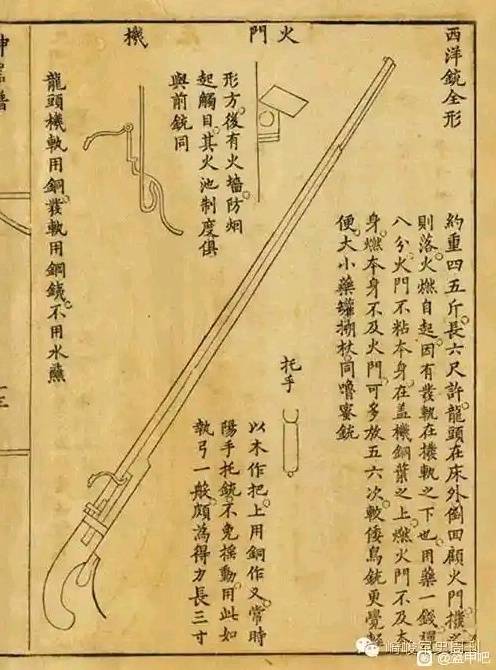 西洋銃全形
約重四五斤長六尺許龍頭在床外倒回顧火門撲之
則落火燃自起因有發軌在機軌之下也用藥一錢彈
八分火門不粘本身在盖機銅葉之上燃火門不及本
身燃本身不及火門可多放五六次較倭鳥銃更覺輕
便大小藥罐搠杖同嚕蜜銃
托手
以木作把上用銅作叉常時
陽手托銃不免搖動用此如
執弓一般頗為得力長三寸
火門
形方後有火墻防烟
起觸目其火池制度俱
與前銃同
機
龍頭機軌用銅發軌用鋼銕不用水蘸
@盔甲吧